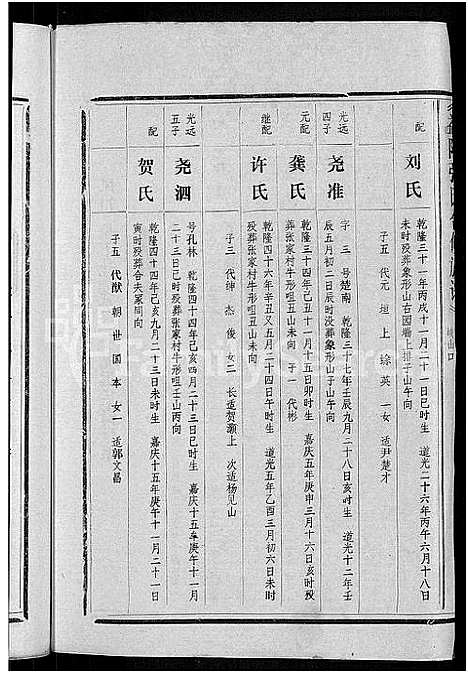 配
刘氏
乾隆三十一年丙戌十一月二十一日巳时生 道光二十六年丙午六月十八日
未时殁葬象形山右园墙上排子山午向
子五 代元 垣 上 综 英 一女 适尹楚才
光远
四子
尧准
字三 号楚南 乾隆三十七年壬辰九月二十八日亥时生 道光十二年壬
辰五月初二日辰时没葬象形山子山午向
元配
龚氏
乾隆三十四年己丑十一月十五日卯时生 嘉庆五年庚申三月十六日亥时殁
葬张家村牛形咀丑山未向 子一 代彬
继配
许氏
乾隆四十六年辛丑又五月二十四日午时生 道光五年乙酉三月初六日未时
殁葬张家村牛形咀丑山未向
子三 代绅 杰 俊 女二 长适贺灏上 次适杨见山
光远
五子
尧泗
号孔林 乾隆四十四年己亥四月二十三日巳时生 嘉庆十五年庚午十一月
二十三日已时殁葬张家村牛形咀壬山丙向
配
贺氏
乾隆四十四年己亥九月二十三日未时生 嘉庆十五年庚午十一月二十一日
寅时殁葬合夫冢同向
子五 代猷 朝 世 国 本 女一 适郭文昌